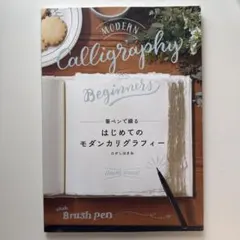 MODERN
Calligraphy
for
Beginners
筆ペンで綴る
はじめての
モダンカリグラフィー
with
Brush pen